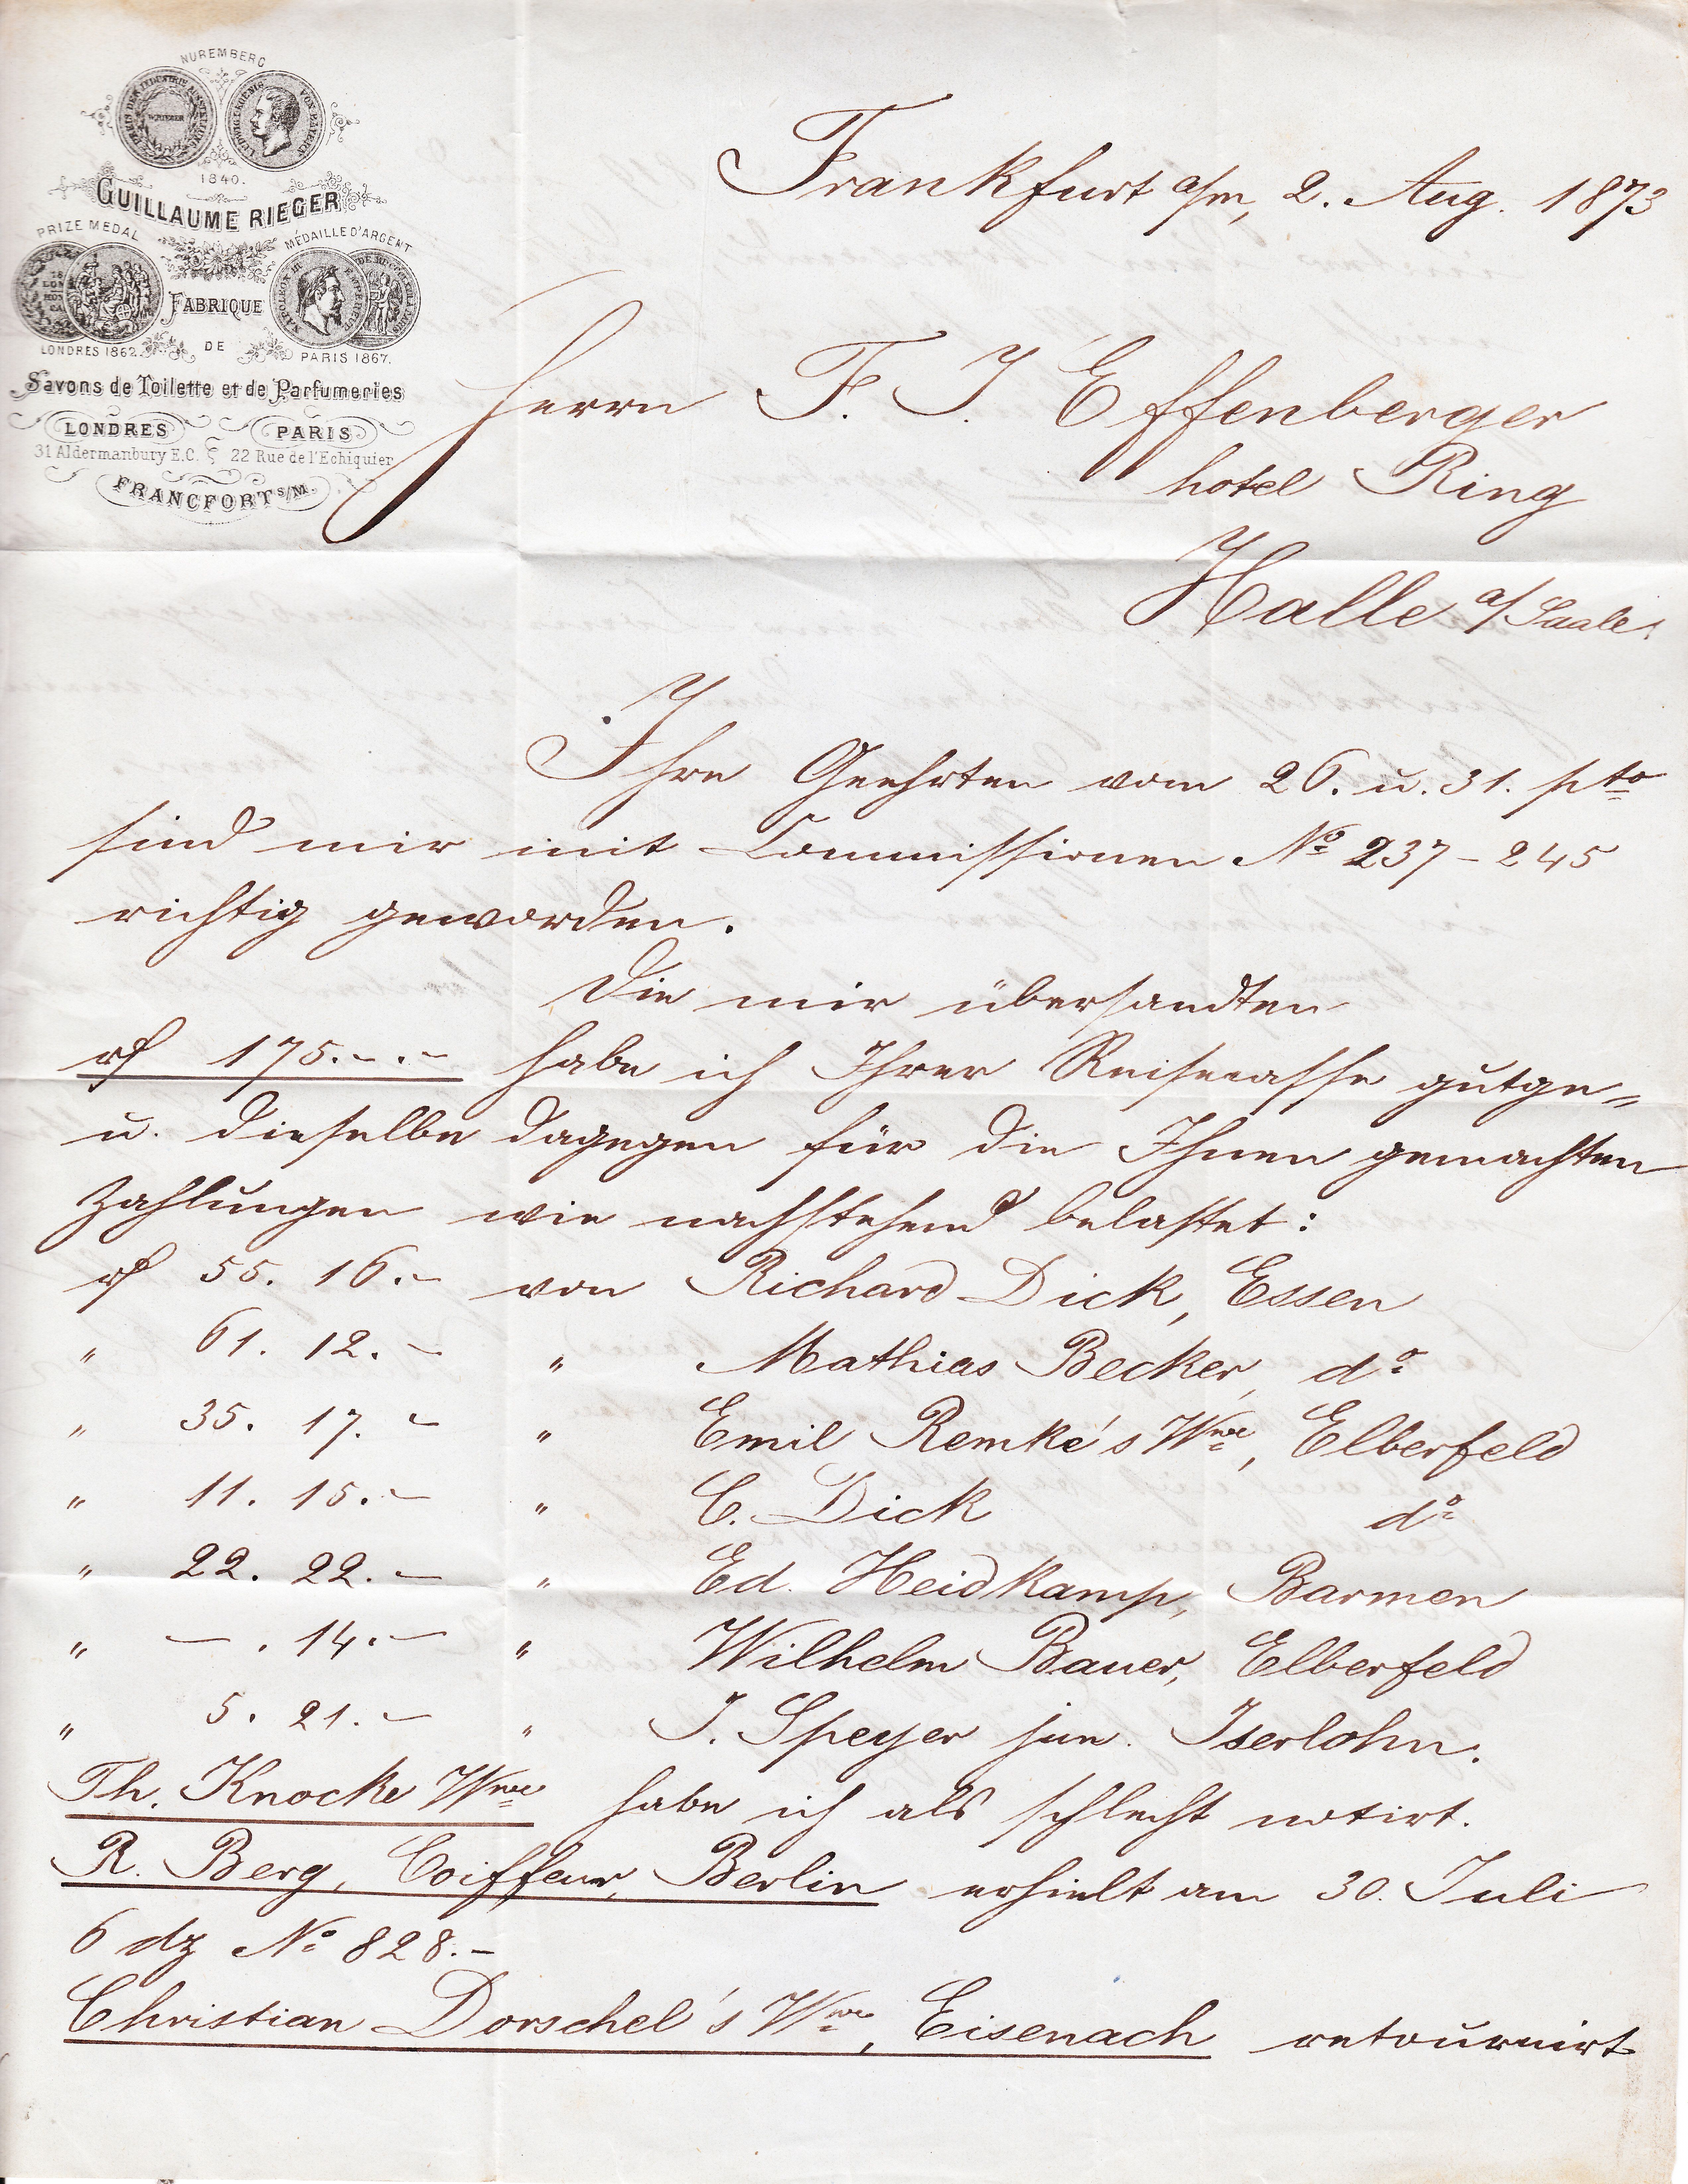 NUREMBERG
1840.
GUILLAUME RIEGER
PRIZE MEDAL
MÉDAILLE D'ARGENT
FABRIQUE
DE
LONDRES 1862.
PARIS 1867.
Savons de Toilette et de Parfumeries
LONDRES
PARIS
31 Aldermanbury E.C.
22 Rue de l'Echiquier
FRANCFORT S/M.
Frankfurt a/m, 2. Aug. 1873
Herrn F. J. Effenberger
hotel Ring
Halle a/Saale.
Ihre Geehrten vom 26. u. 31. pto
sind mir mit Commissionen No 237-245
richtig geworden.
Die mir übersandten
rf 175.-.- habe ich Ihrer Reisecasse gutge=
u. dieselbe dagegen für die Ihnen gemachten
Zahlungen wie nachstehend belastet:
rf 55. 16.- von Richard Dick, Essen
" 61. 12.- " Mathias Becker, do
" 35. 17.- " Emil Remké's Wwe, Elberfeld
" 11. 15.- " C. Dick do
" 22. 22.- " Ed. Heidkamp, Barmen
" -. 14.- " Wilhelm Bauer, Elberfeld
" 5. 21.- " J. Speyer jun. Iserlohn.
Th. Knocke Wwe habe ich als schlecht notirt.
R. Berg, Coiffeur, Berlin erhielt am 30. Juli
6 dz No 828.-
Christian Dorschel's Wwe, Eisenach retournirt